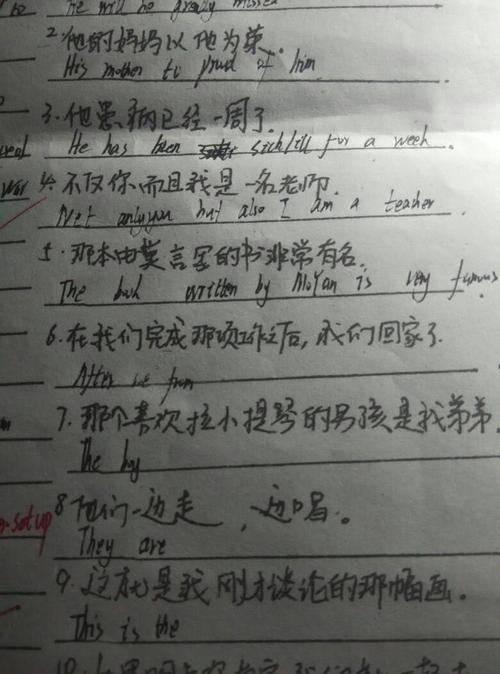 He will be greatly missed
2. 他的妈妈以他为荣.
His mother to proud of him
3. 他患病已经一周了.
He has been sick/ill for a week.
4. 不仅你而且我是一名老师.
Not only you but also I am a teacher.
5. 那本由莫言写的书非常有名.
The book written by MoYan is very famous.
6. 在我们完成那项工作之后, 我们回家了.
After we
7. 那个喜欢拉小提琴的男孩是我弟弟.
The boy
set up
8 他们一边走 , 边唱。
They are
9. 这就是我刚才谈论的那幅画。
This is the
10.